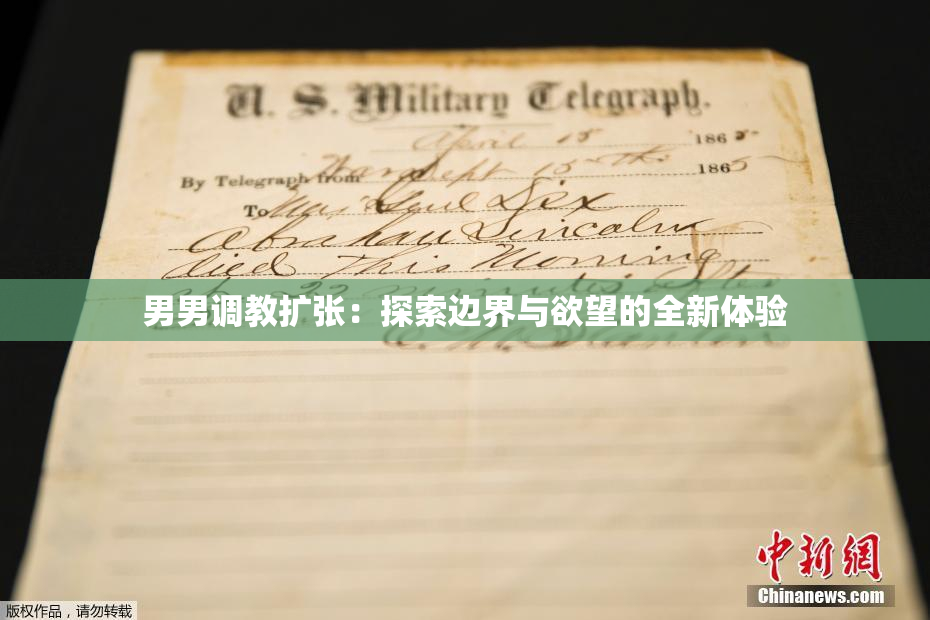 U. S. Military Telegraph.
April 15 1865
By Telegraph from War Dept 15th 1865
To Maj Genl Dix
Abraham Lincoln
died This Morning
22 minutes after
男男调教扩张：探索边界与欲望的全新体验
E. M. Stanton
中新网
Chinanews.com
版权作品，请勿转载